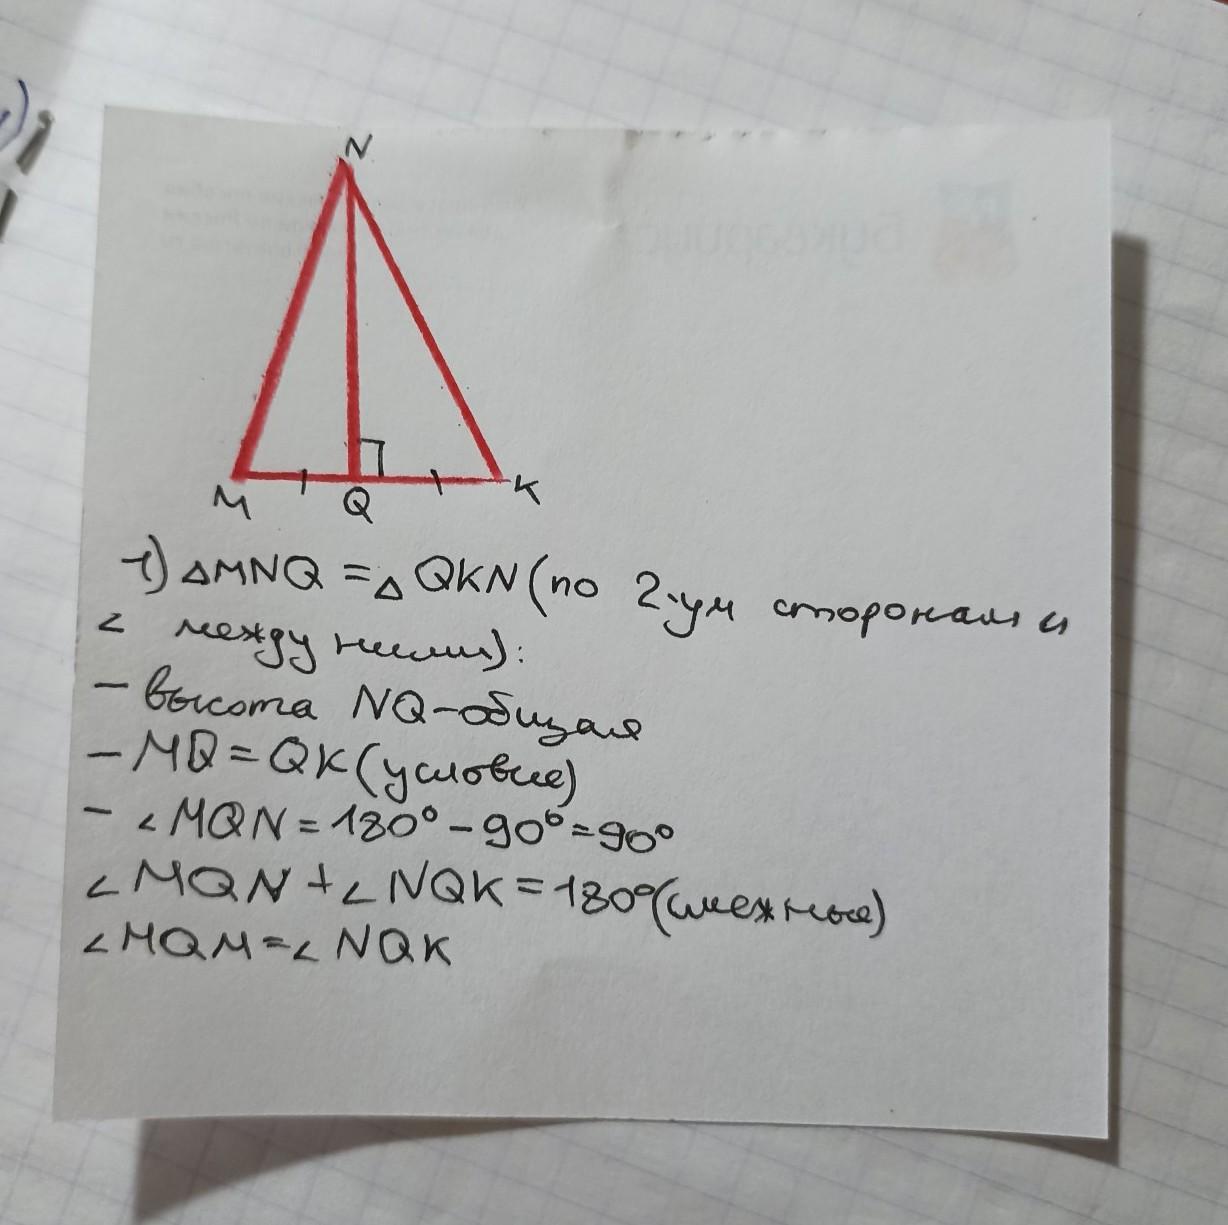 N
M
Q
K
1) △MNQ = △QKN (по 2-ум сторонам и
∠ между ними):
- высота NQ-общая
- MQ = QK (условие)
- ∠MQN = 180° - 90° = 90°
∠MQN + ∠NQK = 180° (смежные)
∠MQM = ∠NQK
Буквариус